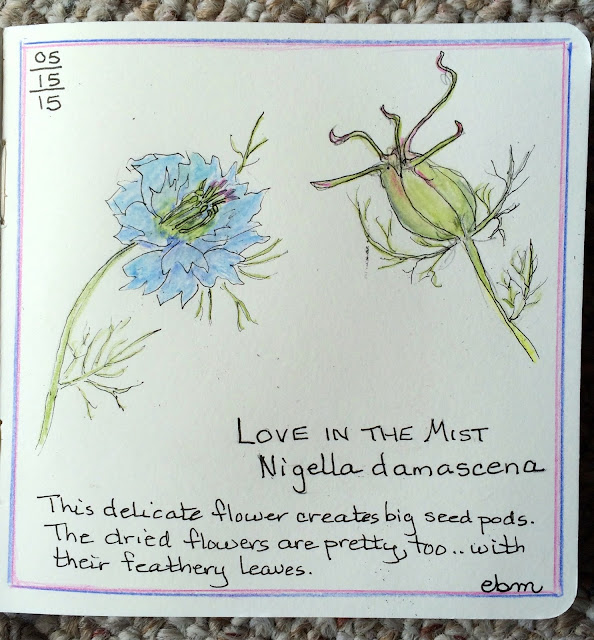 05
15
15
LOVE IN THE MIST
Nigella damascena
This delicate flower creates big seed pods.
The dried flowers are pretty, too.. with
their feathery leaves.
ebm